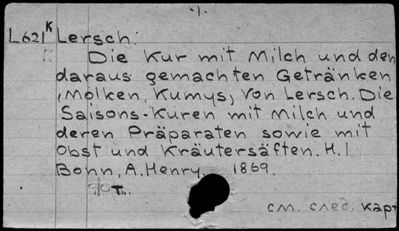 ·1·
L621ᴷ Lersch:
Die Kur mit Milch und den
daraus gemachten Getränken
(Molken, Kumys) von Lersch. Die
Saisons-Kuren mit Milch und
deren Präparaten sowie mit
Obst und Kräutersäften. H. I
Bonn, A. Henry. 1869.
см. след. карт